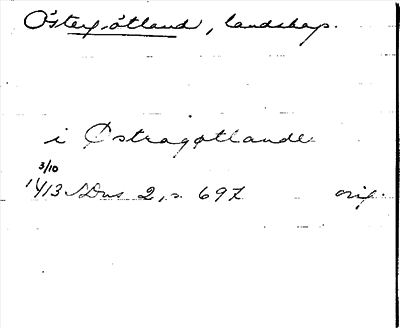 Östergötland, landskap.
i Østragøtlande
3/10
1413 SDns 2, s. 697 orig.